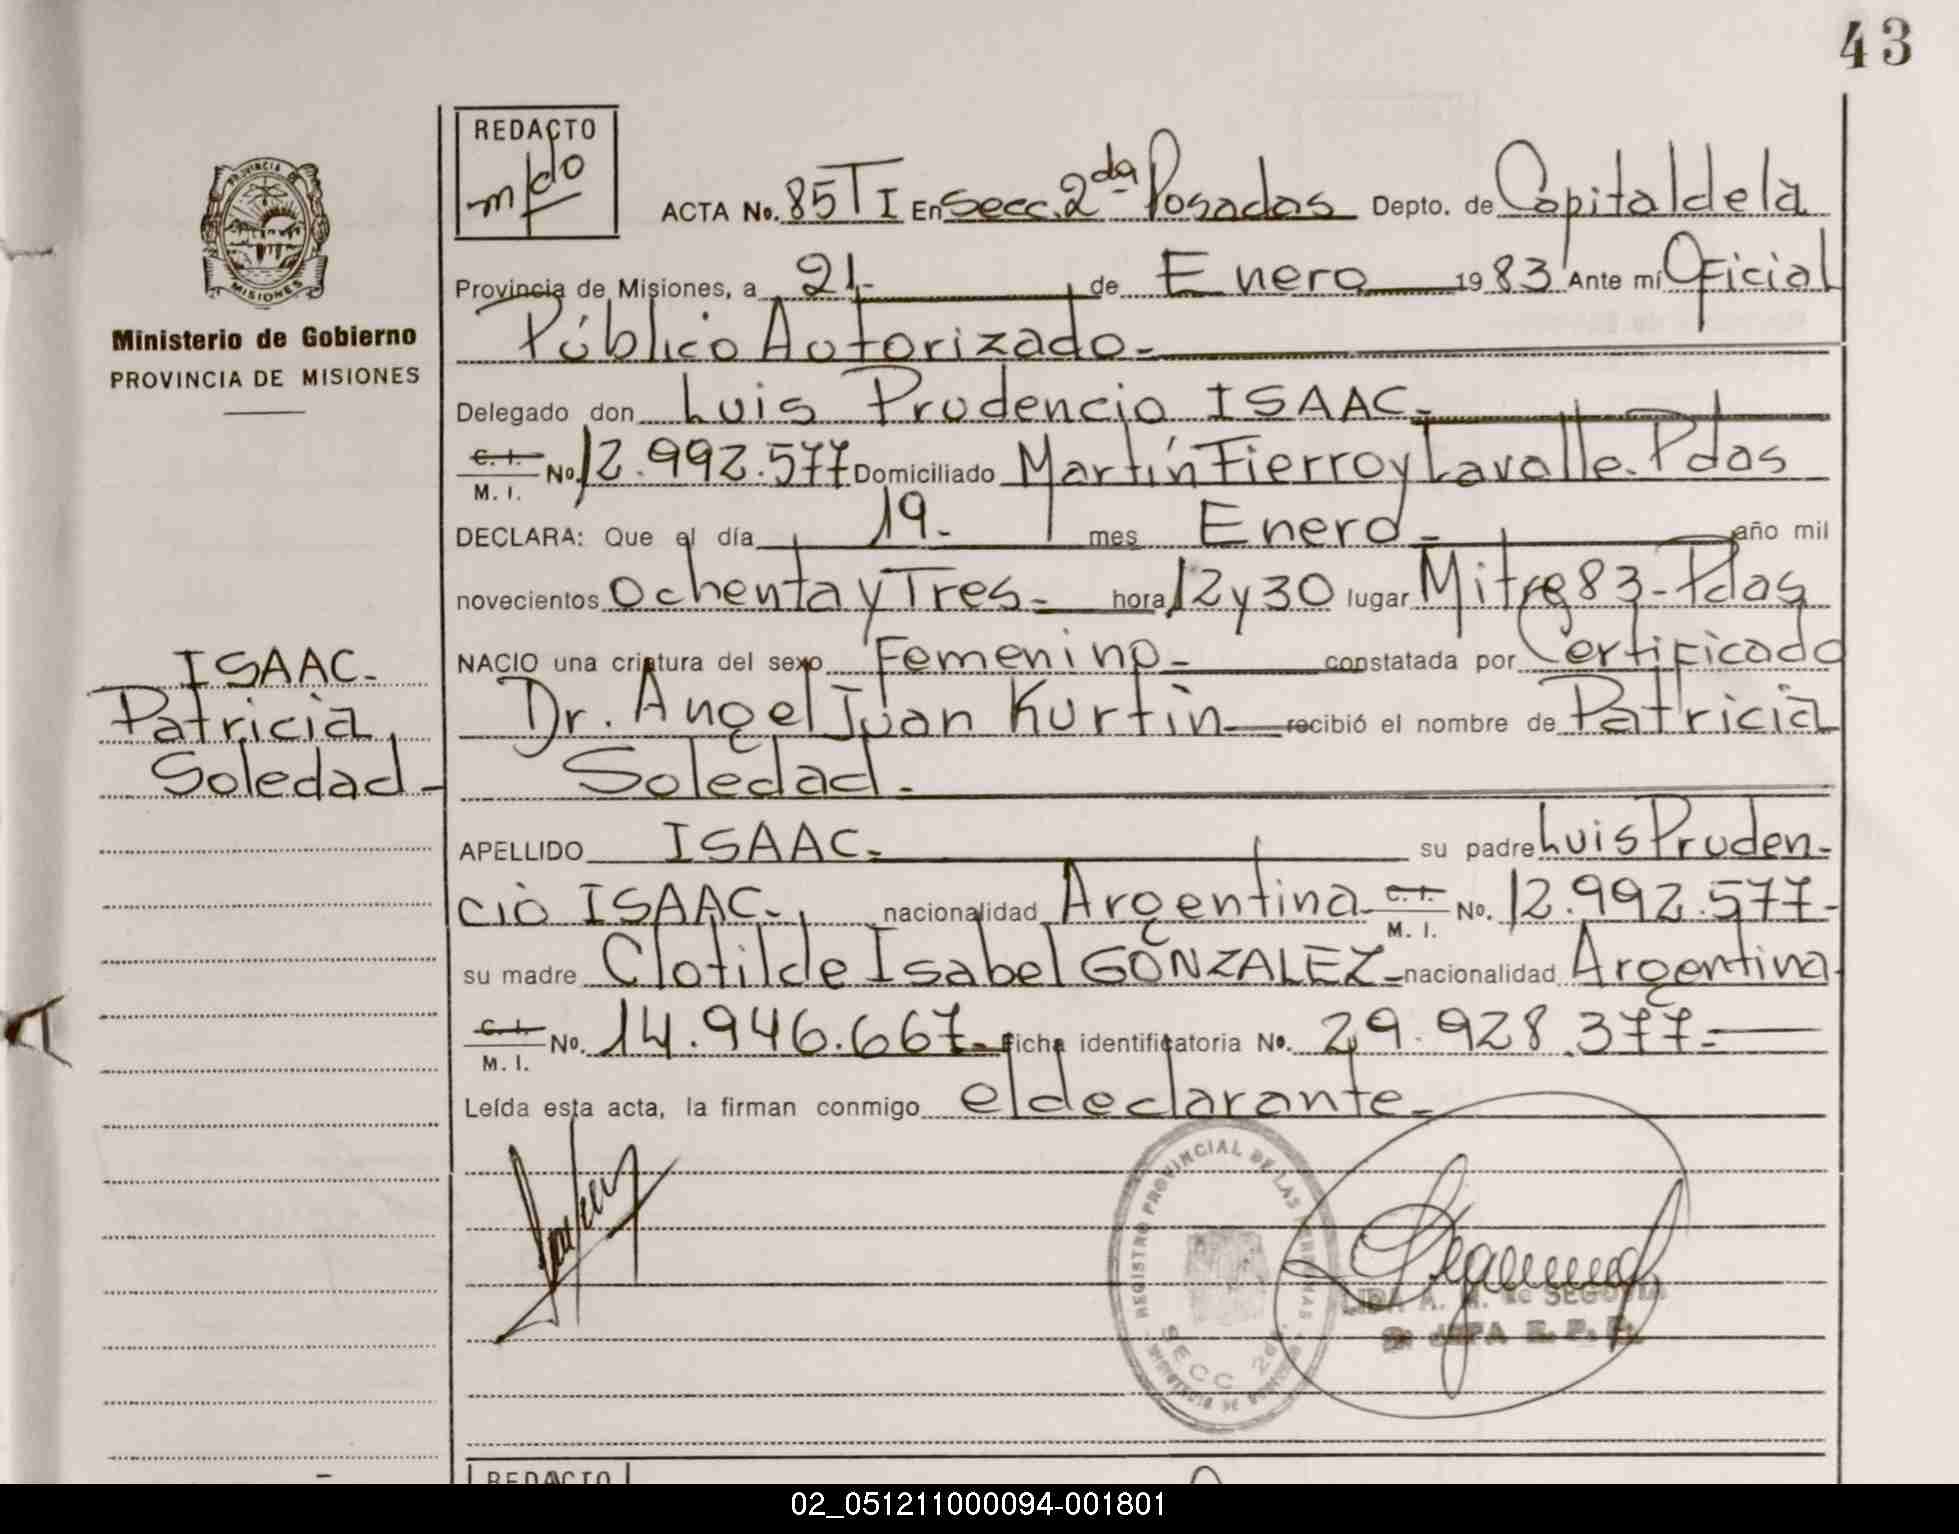 43
PROVINCIA DE
MISIONES
Ministerio de Gobierno
PROVINCIA DE MISIONES
ISAAC.
Patricia
Soledad-
REDACTO
ACTA No. 85 T I En Secc. 2da Posadas Depto. de Capital de la
Provincia de Misiones, a 21- de Enero 1983 Ante mí Oficial
Público Autorizado-
Delegado don Luis Prudencio ISAAC-
C. I. M. I. No. 12.992.577 Domiciliado Martín Fierro y Lavalle. Pdas
DECLARA: Que el día 19- mes Enero- año mil
novecientos Ochenta y Tres- hora 12 y 30 lugar Mitre 83- Pdas
NACIO una criatura del sexo Femenino- constatada por Certificado
Dr. Angel Juan Kurtin recibió el nombre de Patricia
Soledad-
APELLIDO ISAAC- su padre Luis Pruden-
cio ISAAC- nacionalidad Argentina- C. I. M. I. No. 12.992.577-
su madre Clotilde Isabel GONZALEZ- nacionalidad Argentina-
C. I. M. I. No. 14.946.667- Ficha identificatoria No. 29.928.377-
Leída esta acta, la firman conmigo el declarante-
REGISTRO PROVINCIAL DE LAS PERSONAS
SECC 2da
LIDA A. M. de SEGOVIA
REDACTO
02_051211000094-001801